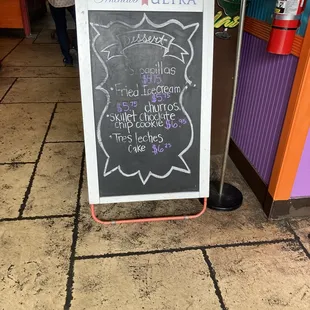 ULTRA
Dessert
Sopapillas
$4.75
• Fried Ice Cream
$5.75
$5.75 churros
• Skillet chocolate
chip cookie $6.95
• Tres leches
Cake $6.25